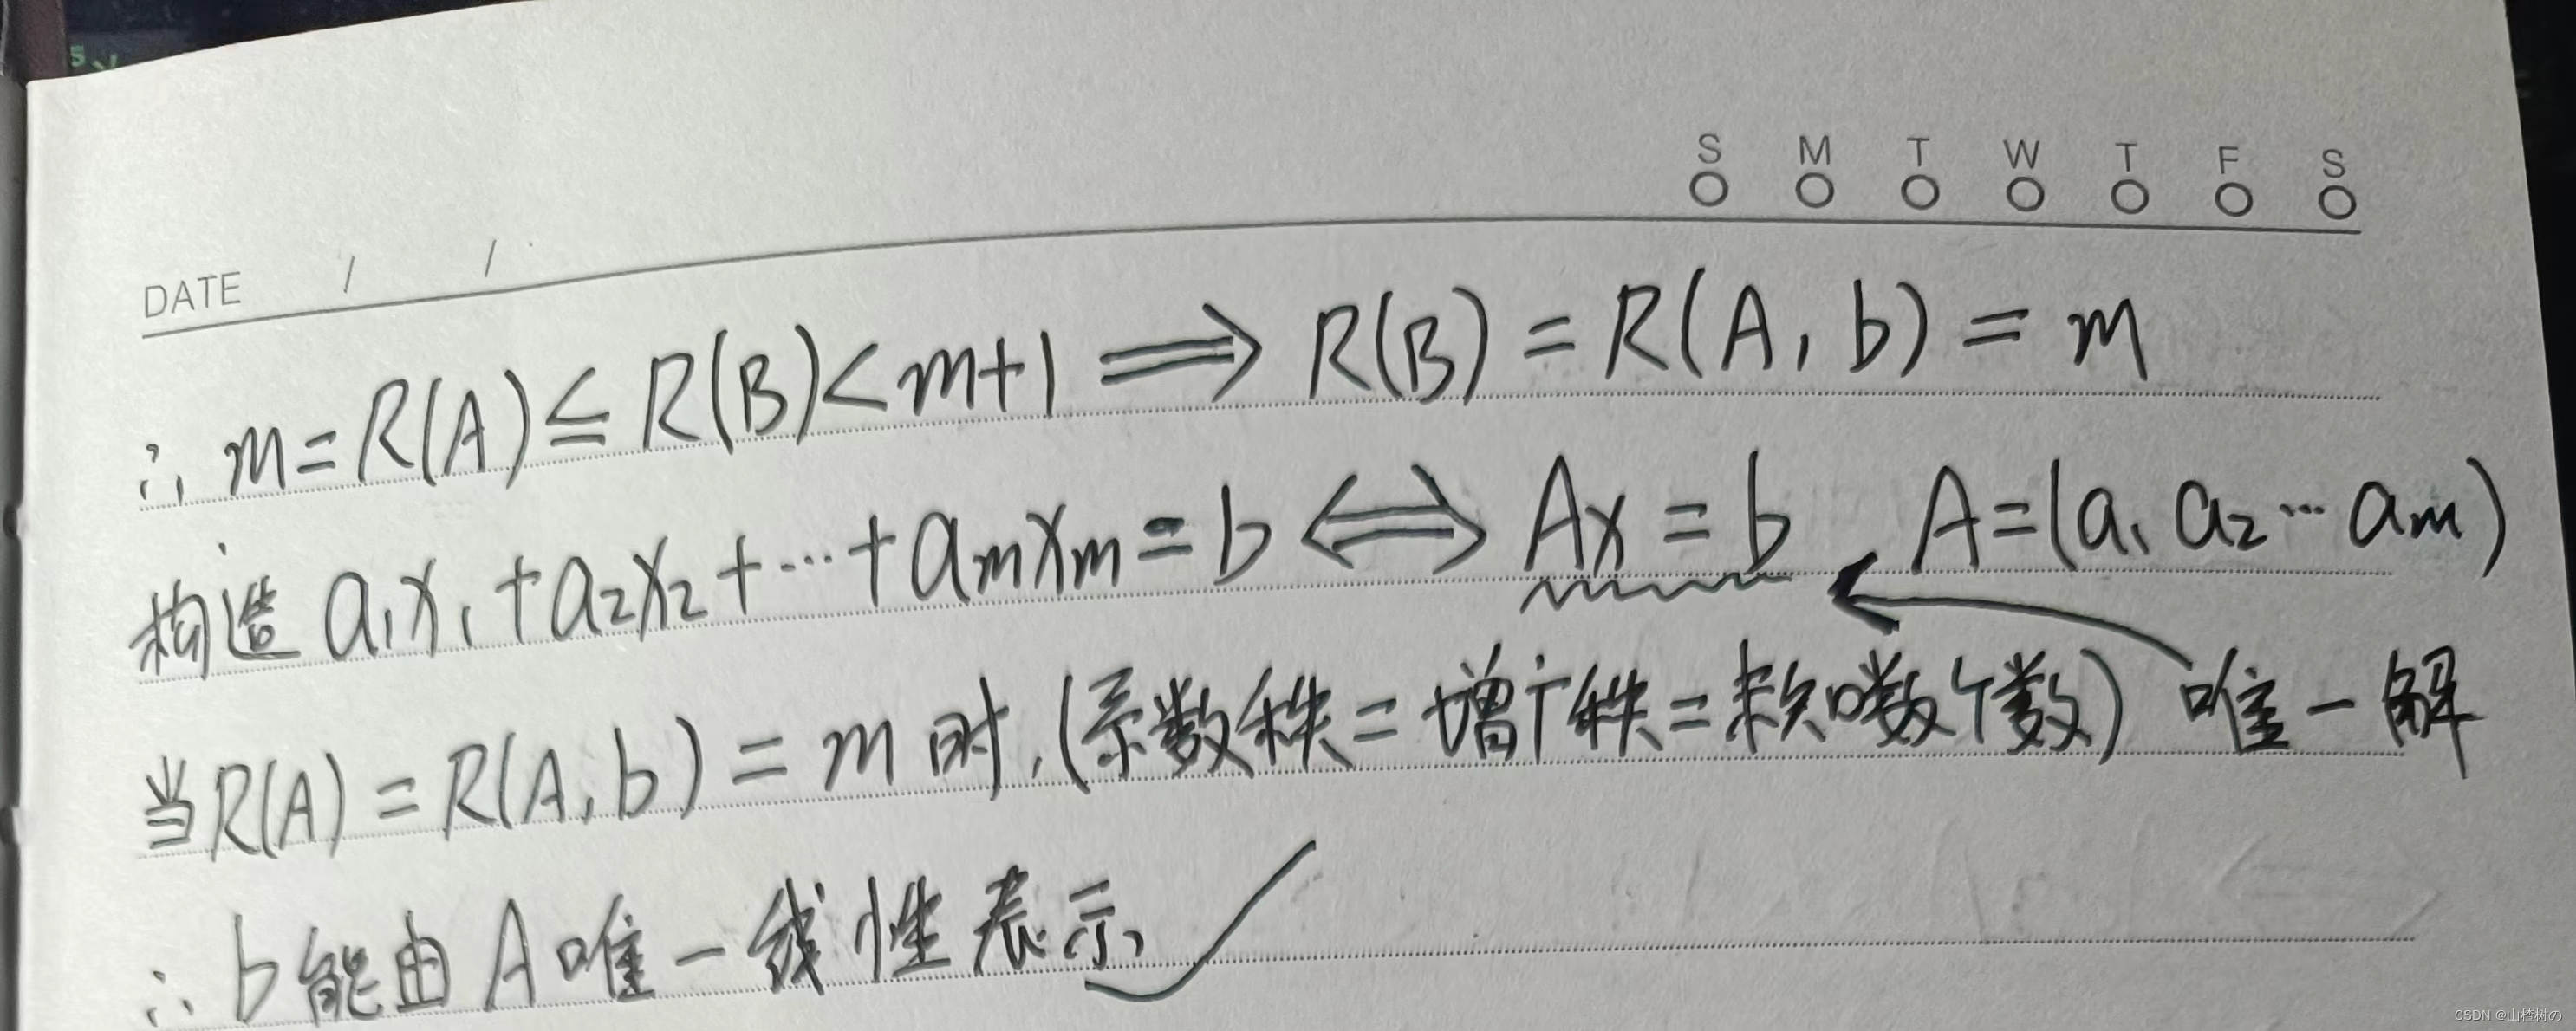 S M T W T F S
DATE / /
∴ m=R(A)≤R(B)<m+1 ⟹ R(B)=R(A,b)=m
构造 a₁x₁+a₂x₂+···+aₘxₘ=b ⟺ Ax=b A=(a₁ a₂···aₘ)
当R(A)=R(A,b)=m时,(系数秩=增广秩=未知数个数) 唯一解
∴ b能由A唯一线性表示
CSDN @山楂树の